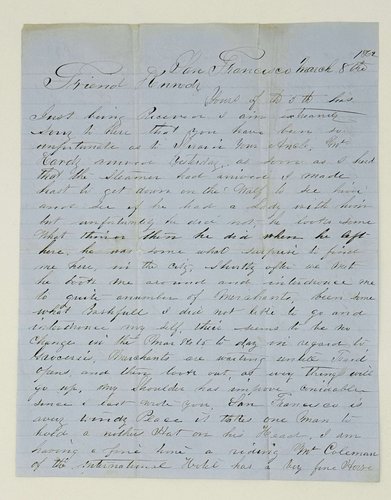 San Francisco March 8th 1862
Friend
Yours of th 5th
Just being I am extremely
Sorry to here that you have been so
unfortunate as to Sprain your Ancle, Mr
arrived Yesterday, as soon as I herd
that the Steamer had arrived I made
hast to get down on the Warf to see him
and see if he had a Lady with him
but unfortunetly he did not, he looks some
What thiner then he did when he left
here, he was some what surprise to find
me here in the city, Shortly after we met
he took me around and introduce me
to quite a number of Merchants, been some
what bashfull I did not like to go and
introduce my self, their seems to be no
Changes in the Markets to day in regard to
Groceries, Merchants are waiting untill Trade
opens, and then look out, as every thing will
go up, My Shoulder has improve
since I last wrote you, San Francisco is
a very windy Place it takes one Man to
hold a nother Hat on his Head, I am
having a fine time a riding Mr Coleman
of the International Hotel has a very fine Horse